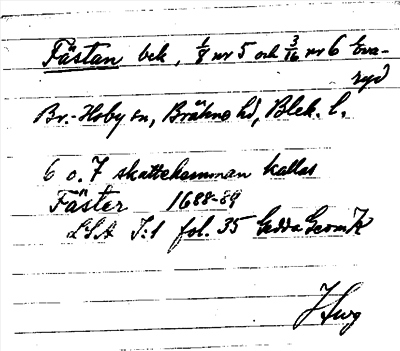 Fästan bek, 1/8 nr 5 och 3/16 nr 6 Eva-
ryd
Br.-Hoby sn, Bräkne hd, Blek. l.
6 o. 7 skattehemman kallas
Fäster 1688-89
LSA I:1 fol. 35 Gedda Geom K